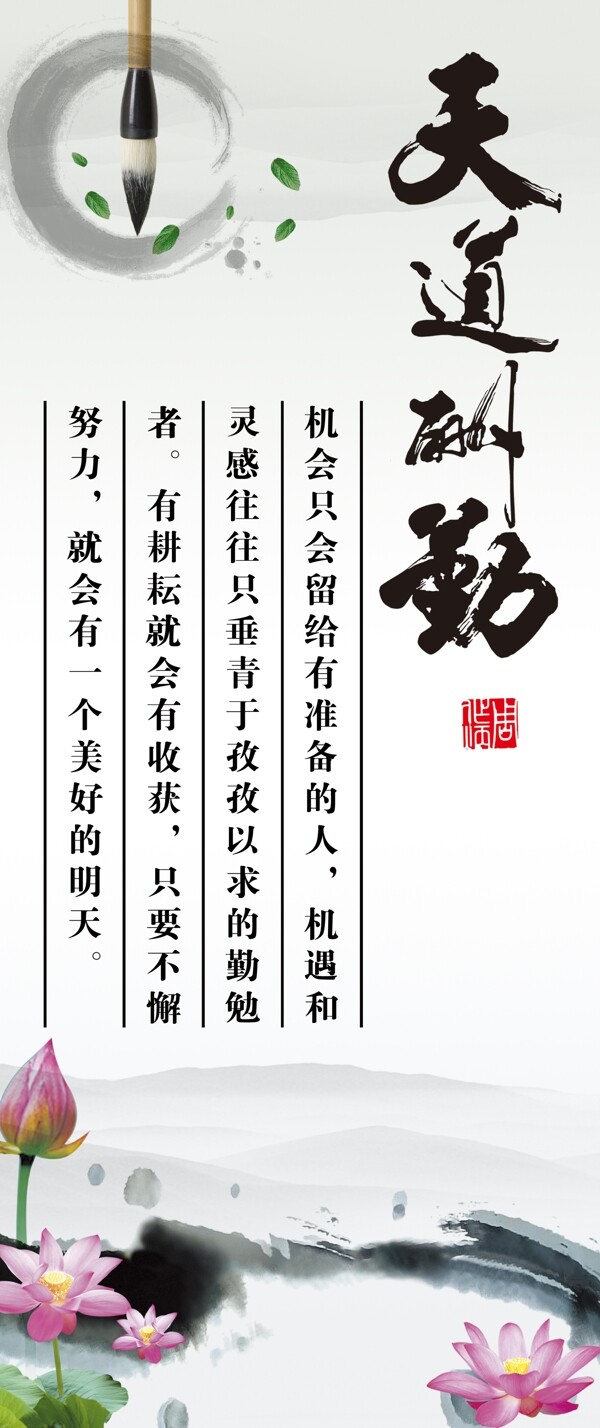 天道酬勤
机会只会留给有准备的人，机遇和
灵感往往只垂青于孜孜以求的勤勉
者。有耕耘就会有收获，只要不懈
努力，就会有一个美好的明天。